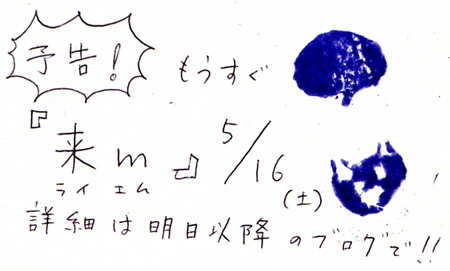 予告！ もうすぐ
『来m』 5/16 (土)
ライエム
詳細は明日以降のブログで!!